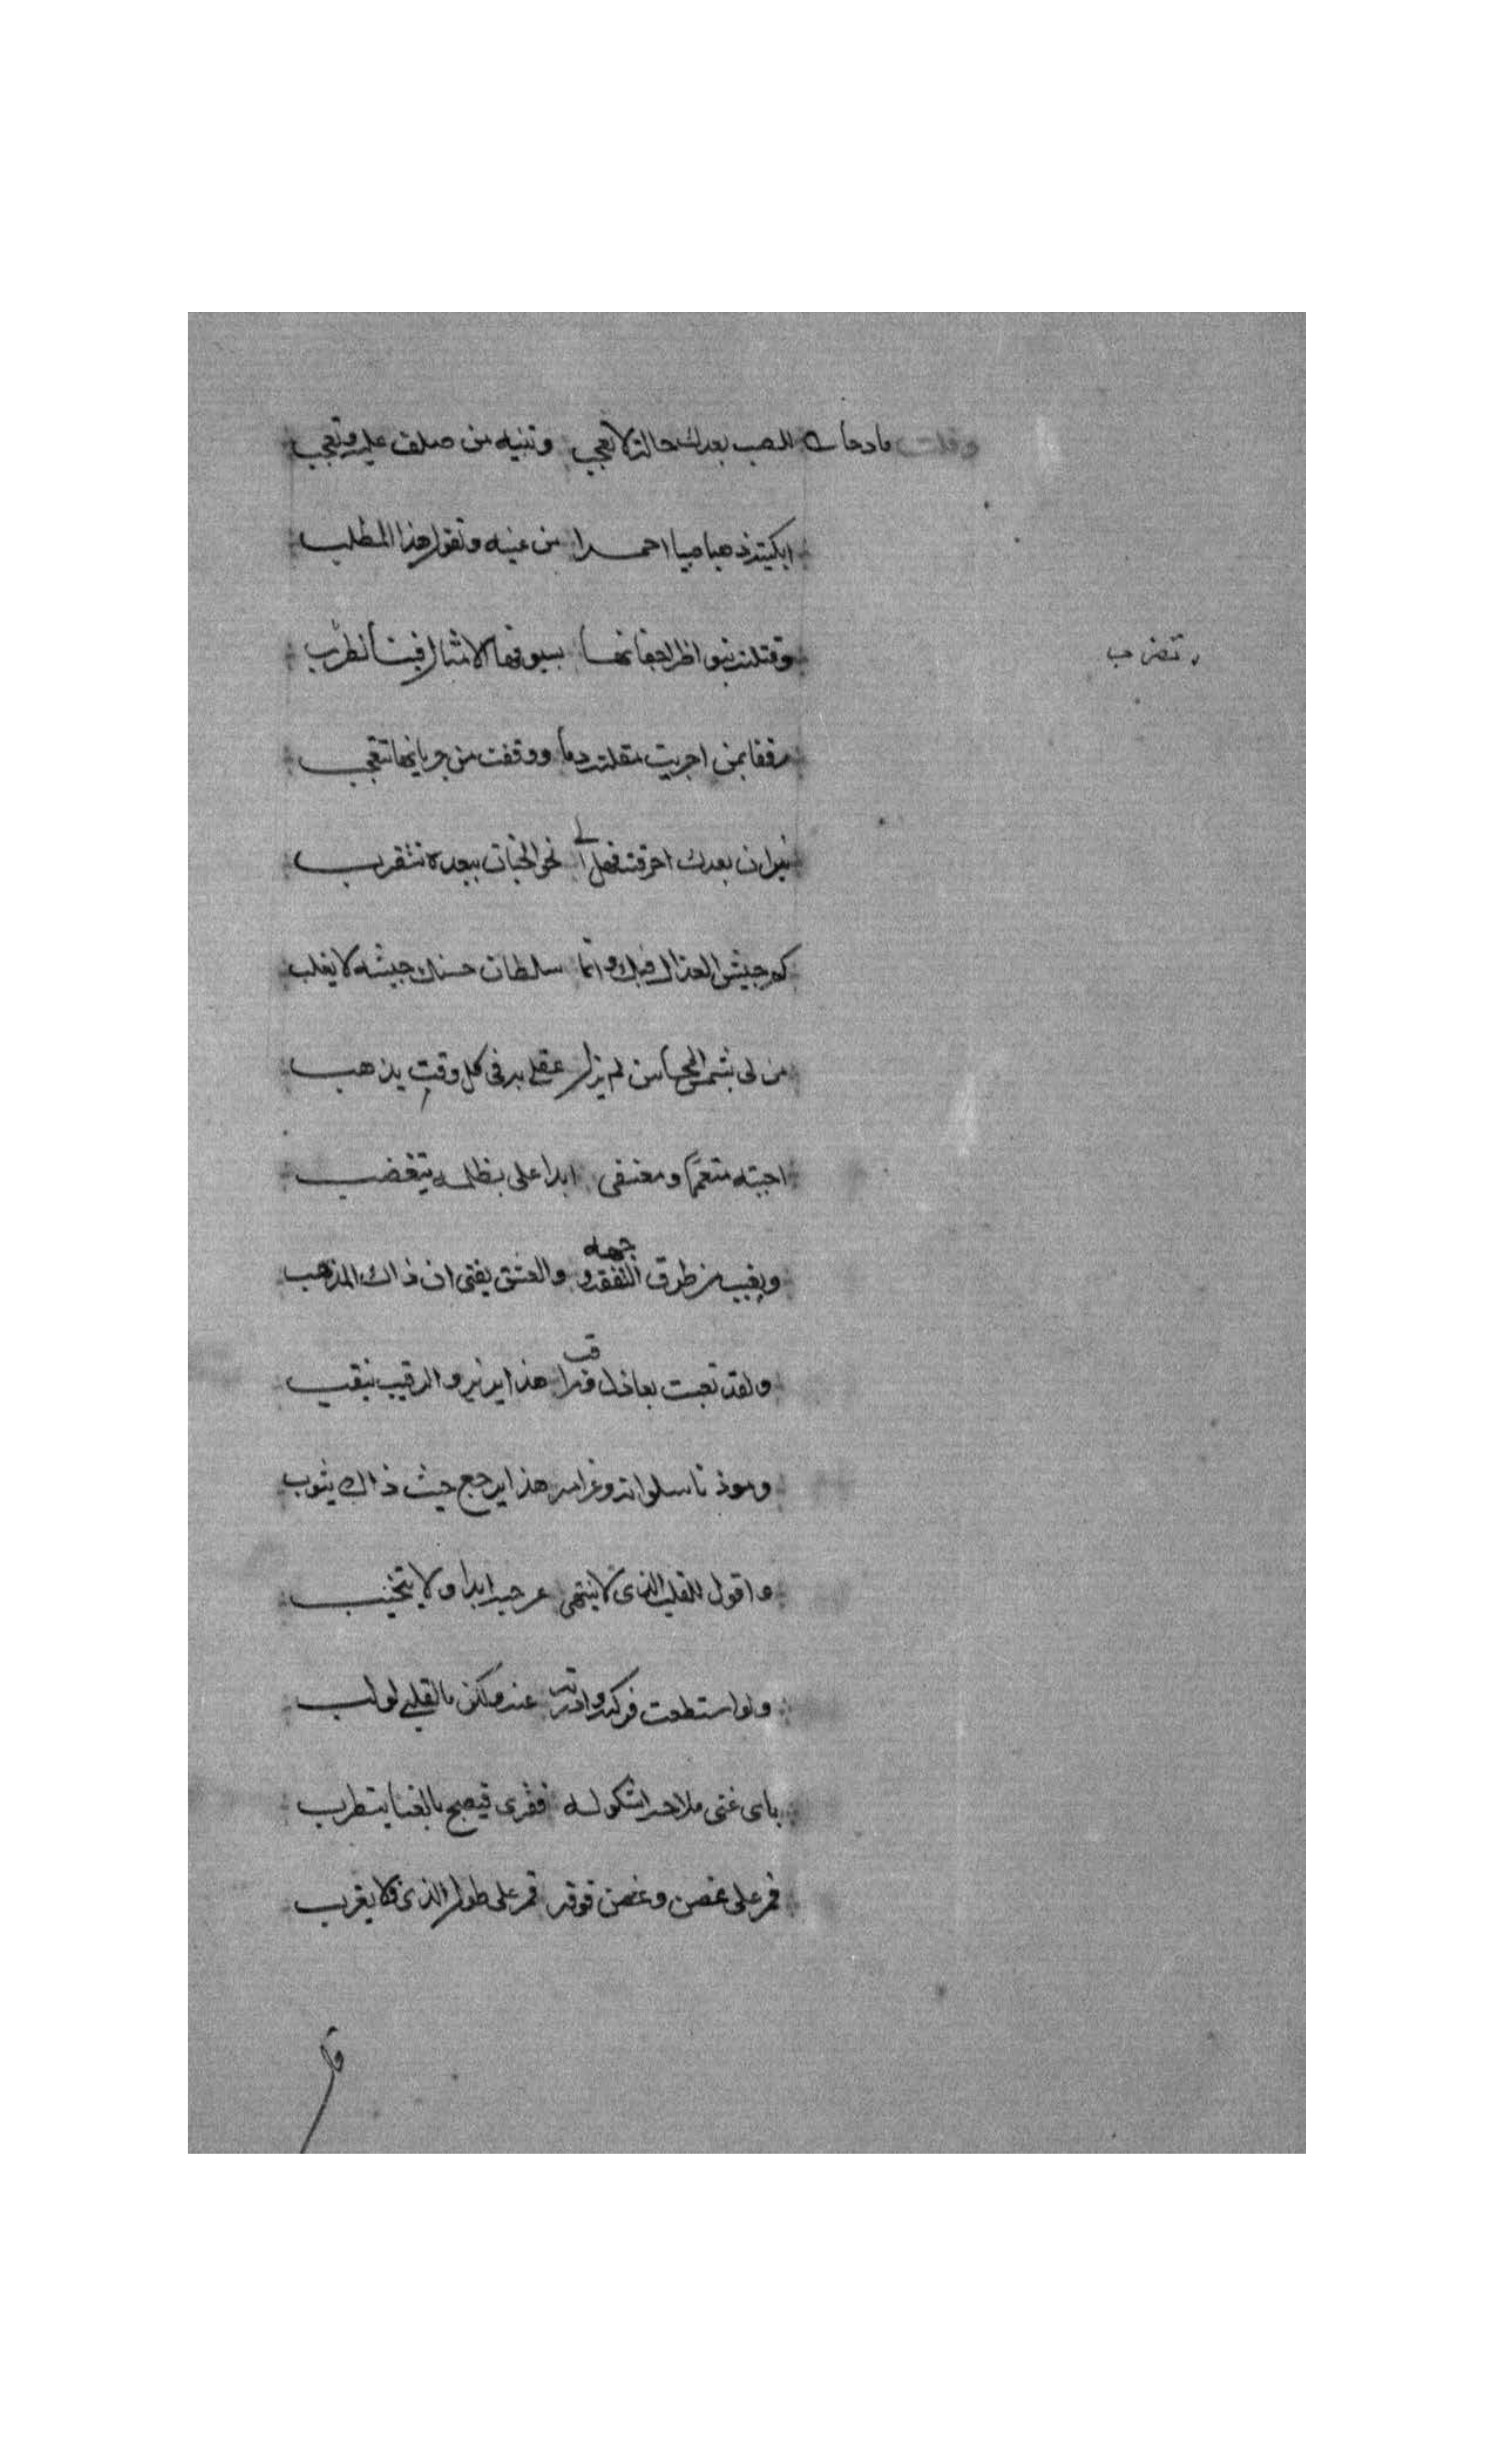 وقلت مادحا للصب بعدك حالة لا تعجب وتتيه من صلف عليه وتعجب
ابكيته ذهبا صبيبا احمرا من عينه وتقول هذا المطلب
وقتلته بنواظر اجفانها بسيوفها الامثال فينا تضرب
تضرب
رفقا بمن اجريت مقلته دما ووقفت من جريانها تتعجب
نيران بعدك احرقته فهل الى نحو الجنات ببعده تتقرب
كم جيش العذال فيك وانما سلطان حسنك جيشه لا يغلب
من لي بشمسي المحاسن لم يزل عقلي به في كل وقت يذهب
احببته متعمما ومعنفي ابدا علي بظلمه يتغضب
ويغيب من طرق التفقه وجهه والعشق يفتي ان ذاك المذهب
ولقد تعبت بعاذل ومراقب هذا يزير والرقيب ينقب
ومؤذنا سلوانه وغرامه هذا يرجع حيث ذاك يثوب
واقول للقلب الذي لا ينتهي عن حبه ابدا ولا يتجنب
ولو استطعت فركته وادرته عنه ولكن ما لقلبي لولب
بابي غني ملاحة اشكو له فقري فيصبح بالغنا يتطرب
قمر على غصن وغصن فوقه قمر على طول الذي لا يغرب